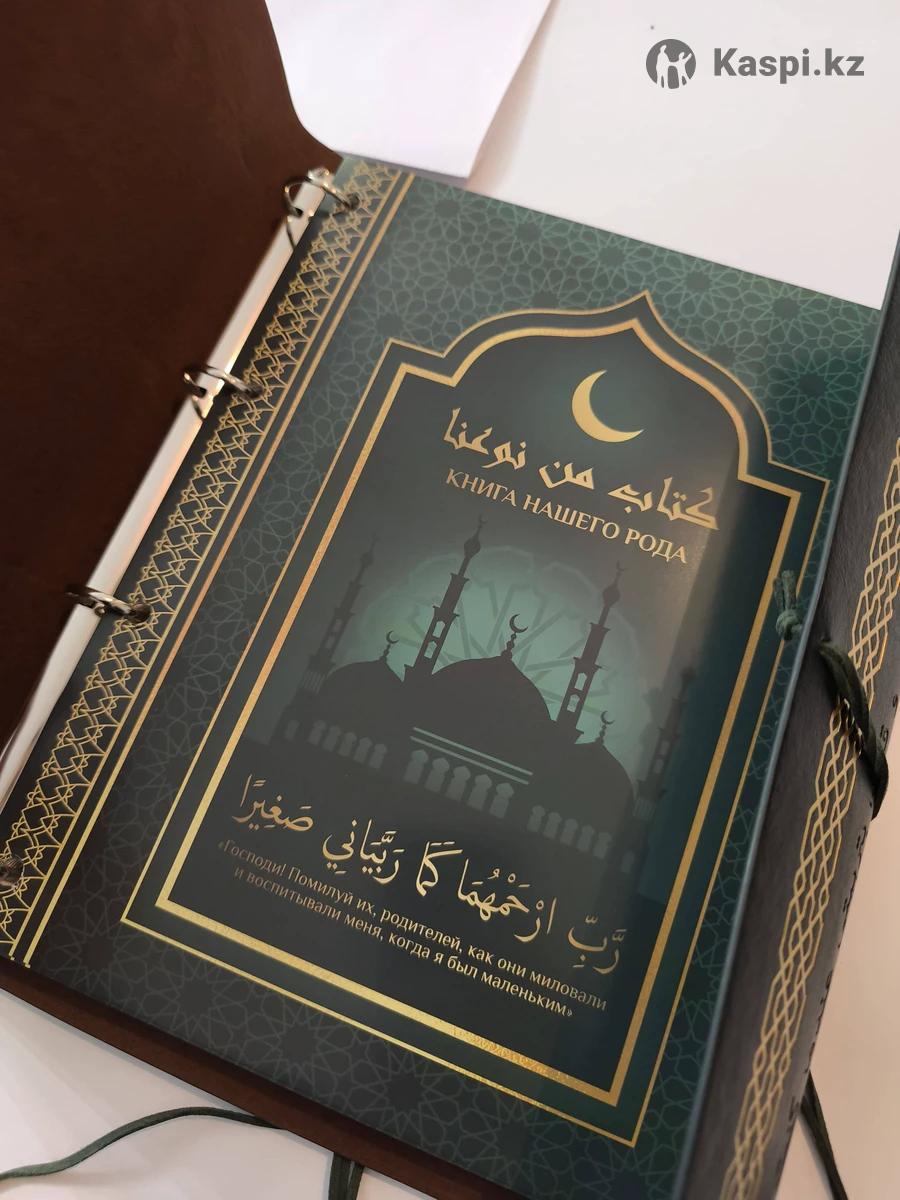 Kaspi.kz
كتاب من نوعنا
КНИГА НАШЕГО РОДА
رَّبِّ ارْحَمْهُمَا كَمَا رَبَّيَانِي صَغِيرًا
«Господи! Помилуй их, родителей, как они миловали
и воспитывали меня, когда я был маленьким»